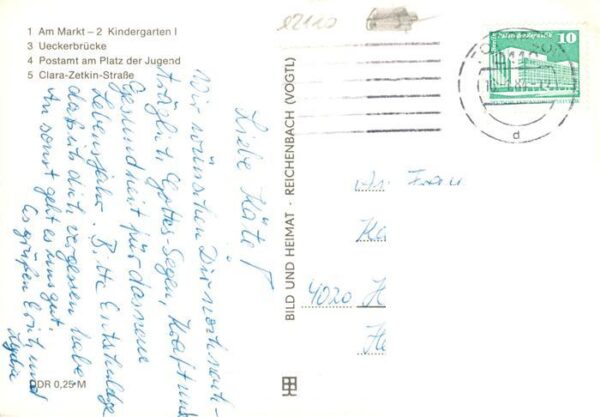 1 Am Markt – 2 Kindergarten I
3 Ueckerbrücke
4 Postamt am Platz der Jugend
5 Clara-Zetkin-Straße
Liebe Käte!
Wir wünschen Dir nachträg-
lich Gottes-Segen, Kraft und
Gesundheit für das neue
Lebensjahr. Bitte Entschuldige
daß ich dich vergessen habe
An sonst geht es uns gut.
Es grüßen Erich und
Lydia
DDR 0,25 M
BILD UND HEIMAT · REICHENBACH (VOGTL)
10
d
An Frau
4020 H